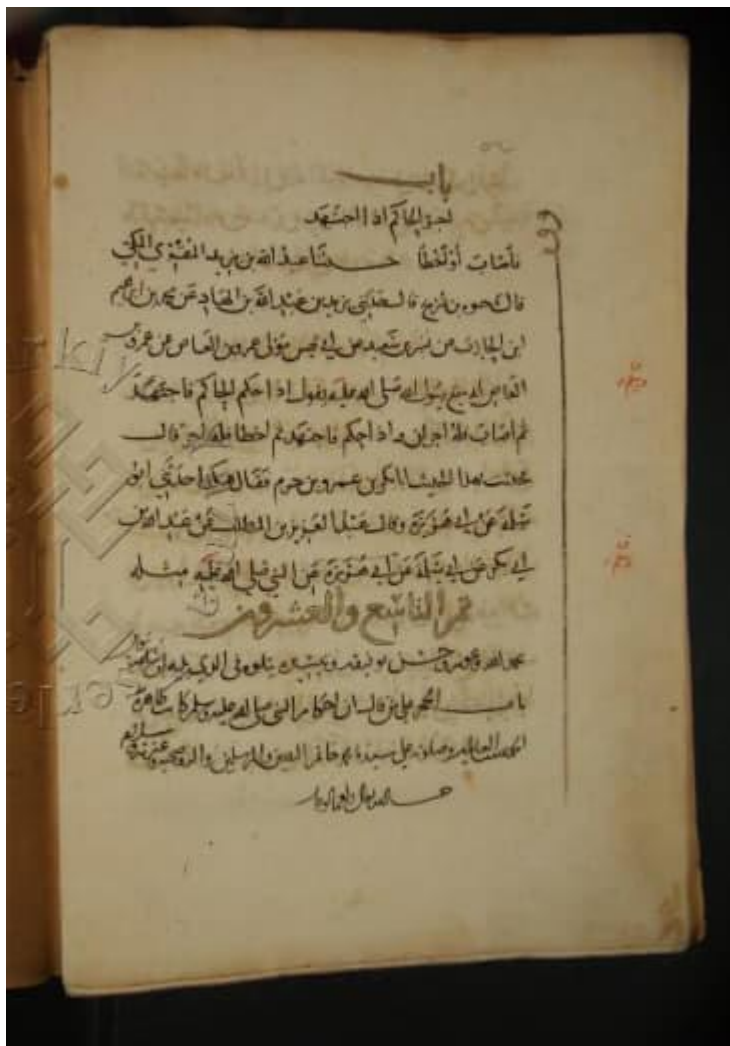 باب
اجر الحاكم اذا اجتهد
فاصاب او اخطا حدثنا عبد الله بن يزيد المقري المكي
قال حيوه بن شريح قال حدثني يزيد بن عبد الله بن الهاد عن محمد بن ابراهيم
ابن الحارث عن بسر بن سعيد عن ابي قيس مولى عمرو بن العاص عن عمرو بن
العاص انه سمع رسول الله صلى الله عليه يقول اذا حكم الحاكم فاجتهد
ثم اصاب فله اجران واذا حكم فاجتهد ثم اخطا فله اجر قال
فحدثت بهذا الحديث ابا بكر بن عمرو بن حزم فقال هكذا حدثني ابو
سلمة عن ابي هريرة وقال عبد العزيز بن المطلب عن عبد الله بن
ابي بكر عن ابي سلمة عن ابي هريرة عن النبي صلى الله عليه مثله
تم التاسع والعشرون
بحمد الله وعونه وحسن توفيقه يتلوه في الذي يليه ان شا الله
باب الحجة على من قال ان احكام النبي صلى الله عليه وسلم كانت ظاهرة
الحمد لله رب العالمين وصلوته على سيدنا محمد خاتم النبيين والمرسلين واله وصحبه